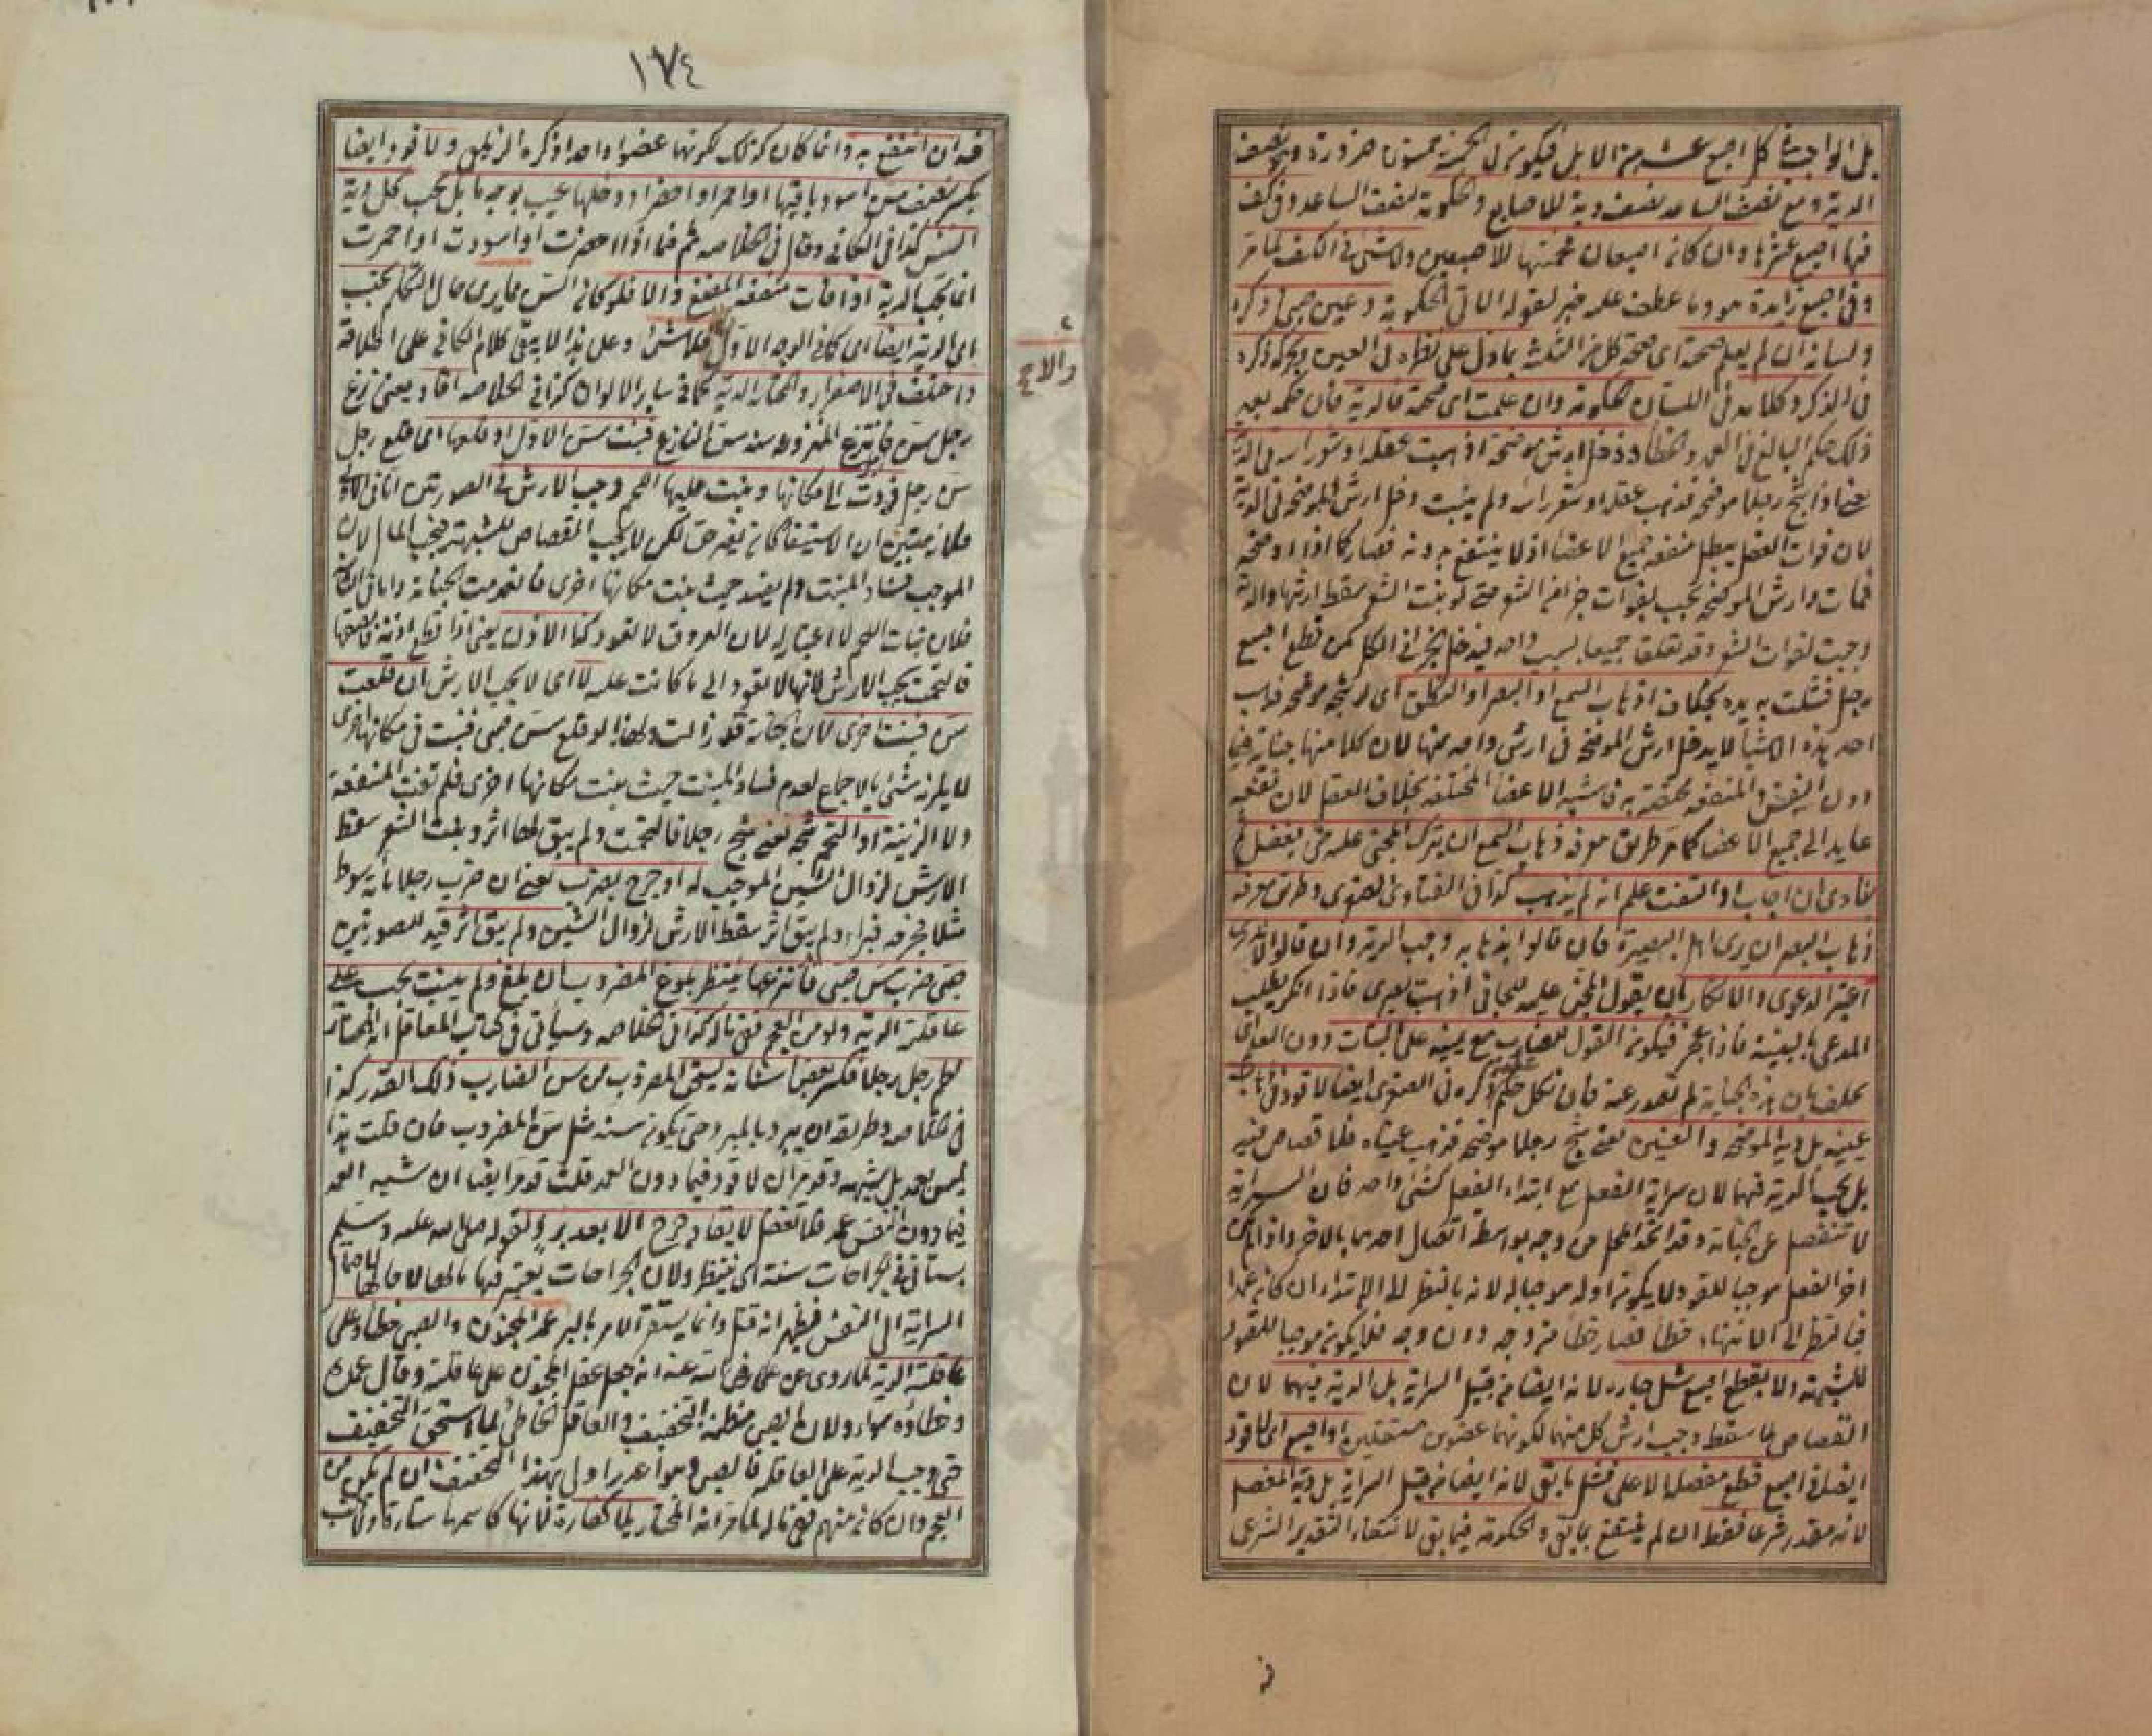 بل الواجب في كل اصبع عشر من الابل فيكون في الخمسة خمسون ضرورة ونصف
الدية ومع نصف الساعد نصف دية للاصابع وحكومة لنصف الساعد وفي كف
فيها اصبع عشرها وان كانت اصبعان فخمسها للاصبعين ولا شئ في الكف لما مر
وفي اصبع زايدة هو وما عطف عليه خبر لقوله الاتي حكومة وعين صبي وذكره
ولسانه ان لم يعلم صحة اي صحة كل من الثلثة بما دل على نظره في العين وبحركة ذكره
في الذكر وكلامه في اللسان حكومة وان علمت اي صحة فالدية فان حكمه بعد
ذلك حكم البالغ في العمد والخطأ ودخل ارش موضحة اذهبت عقله او شعر راسه في الدية
يعني اذا شج رجلا موضحة فذهب عقله او شعر راسه ولم ينبت دخل ارش الموضحة في الدية
لان فوات العقل يبطل منفعة جميع الاعضا اذ لا ينتفع به دونه فصار كما اذا اوضحه
فمات وارش الموضحة يجب بفوات جزء من الشعر حتى لو نبت الشعر سقط ارشها والدية
وجبت لفوات الشعر وقد تعلقا جميعا بسبب واحد فيدخل الجزء في الكل كمن قطع اصبع
رجل فشلت به يده بخلاف اذهاب السمع او البصر او النطق اي لو شجه موضحة فذهب
احد هذه الاشيا لا يدخل ارش الموضحة في ارش واحد منها لان كلا منها جناية فيما
دون النفس والمنفعة مختصة به فاشبه الاعضا المختلفة بخلاف العقل لان نفعه
عايد الى جميع الاعضا كما مر طريق معرفة ذهاب السمع ان يترك المجني عليه حتى يغفل ثم
ينادى ان اجاب او التفت علم انه لم يذهب كذا في الفتاوى الصغرى وطريق معرفة
ذهاب البصر ان يرى اهل البصيرة فان قالوا بذهابه وجب الدية وان قالوا لا ندري
اعتبر الدعوى والانكار بان يقول المجني عليه للجاني اذهبت بصري فاذا انكر يطلب
المدعي بالبينة فاذا عجز فيكون القول للضارب مع يمينه على البتات دون العلم اي
يحلف بان هذه الجناية لم تصدر عنه فان نكل حكم عليه ذكره في الصغرى ايضا لا قود في اذهاب
عينيه بل دية الموضحة والعينين يعني شج رجلا موضحة فذهب عيناه فلا قصاص فيه
بل يجب الدية فيهما لان سراية الفعل مع ابتداء الفعل كشئ واحد فان السراية
لا تنفصل عن الجناية وقد اتحد المحل من وجه بواسطة اتصال احدهما بالاخر واذا لم يكن
اخر الفعل موجبا للقود لا يكون اوله موجبا له لانه بالنظر الى الابتداء ان كان عمدا
فبالنظر الى الانتهاء خطأ فصار خطأ من وجه دون وجه فلا يكون موجبا للقود
للشبهة ولا بقطع اصبع شل جاره لانه ايضا من قبيل السراية بل الدية فيهما لان
القصاص لما سقط وجب ارش كل منهما لكونهما عضوين مستقلين او اصبع اي لا قود
ايضا في اصبع قطع مفصله الاعلى فشل ما بقي لانه ايضا من قبيل السراية بل دية المفصل
لانه مقدر شرعا فقط ان لم ينتفع بما بقي والحكومة فيما بقي لانتفاء التقدير الشرعي
١٧٤
فيه ان انتفع به وانما كان كذلك لكونهما عضوا واحدا ذكره الزيلعي ولا قود ايضا
بكسر نصف سن اسود باقيها او احمر او اخضر او دخلها عيب بوجه ما بل يجب كل دية
السن كذا في الكافي وقال في الخلاصة ثم فيما اذا اخضرت او اسودت او احمرت
انما يجب الدية اذا فات منفعة المضغ والا فلو كانت السن مما يرى حال التكلم يجب
اي الدية ايضا اي كما في الوجه الاول والا فلا شئ وعلى هذا لا يبقى كلام الكافي على اطلاقه
واختلف في الاصفرار والمختار الدية كما في ساير الالوان كذا في الخلاصة اقاد يعني نزع
رجل سن فانتزع المنزوعة سنه سن النازع فنبت سن الاول او قلعها اي قلع رجل
سن رجل فردت الى مكانها ونبت عليها اللحم وجب الارش في الصورتين اما في الاولى
فلانه تبين ان الاستيفا كان بغير حق لكن لا يجب القصاص للشبهة فيجب المال لان
الموجب فساد المنبت ولم يفسد حيث نبت مكانها اخرى فانعدمت الجناية واما في الثانية
فلان نبات اللحم لا اعتبار له لان العروق لا تعود كذا الاذن يعني اذا قطع اذنه فالصقها
فالتحمت يجب الارش لانها لا تعود الى ما كانت عليه لا اي لا يجب الارش ان قلعت
سن فنبت اخرى لان الجناية قد زالت ولهذا لو قلع سن صبي فنبت في مكانها اخرى
لا يلزمه شئ بالاجماع لعدم فساد المنبت حيث نبت مكانها اخرى فلم تفت المنفعة
ولا الزينة او التحم شجة يعني شج رجلا فالتحمت ولم يبق لها اثر ونبت الشعر سقط
الارش لزوال الشين الموجب له او جرح بضرب يعني ان ضرب رجلا مائة سوط
مثلا فجرحه فبرأ ولم يبق اثر سقط الارش لزوال الشين ولم يبق اثر قيد للصورتين
صبي ضرب سن صبي فانتزعها ينتظر بلوغ المضروب ان بلغ ولم ينبت يجب على
عاقلته الدية ولو من العجم ففي ماله كذا في الخلاصة وسياتي في كتاب المعاقل انه المختار
لطم رجل رجلا فكسر بعض اسنانه يستحق المضروب من سن الضارب ذلك القدر كذا
في الخلاصة وطريقه ان يبرد بالمبرد حتى يكون سنه مثل سن المضروب فان قلت هذا
ليس بعمد بل شبهه وقد مر ان لا قود فيما دون العمد قلت قد مر ايضا ان شبه العمد
فيما دون النفس عمد فلا تغفل لا يقاد جرح الا بعد برء لقوله صلى الله عليه وسلم
يستأنى في الجراحات سنة اي ينتظر ولان الجراحات يعتبر فيها مآلها لا حالها لاحتمال
السراية الى النفس فيظهر انه قتل وانما يستقر الامر بالبرء عمد المجنون والصبي خطأ وعلى
عاقلته الدية لما روي عن علي رضي الله عنه انه جعل عقل المجنون على عاقلته وقال عمده
وخطاؤه سواء ولان الصبي مظنة التخفيف والعاقل الخاطئ لما استحق التخفيف
حتى وجب الدية على العاقلة فالصبي وهو اعذر اولى بهذا التخفيف ان لم يكن من
العجم وان كان منهم ففي ماله لما مر انه المختار بلا كفارة لانها كاسمها ستارة ولا ذنب